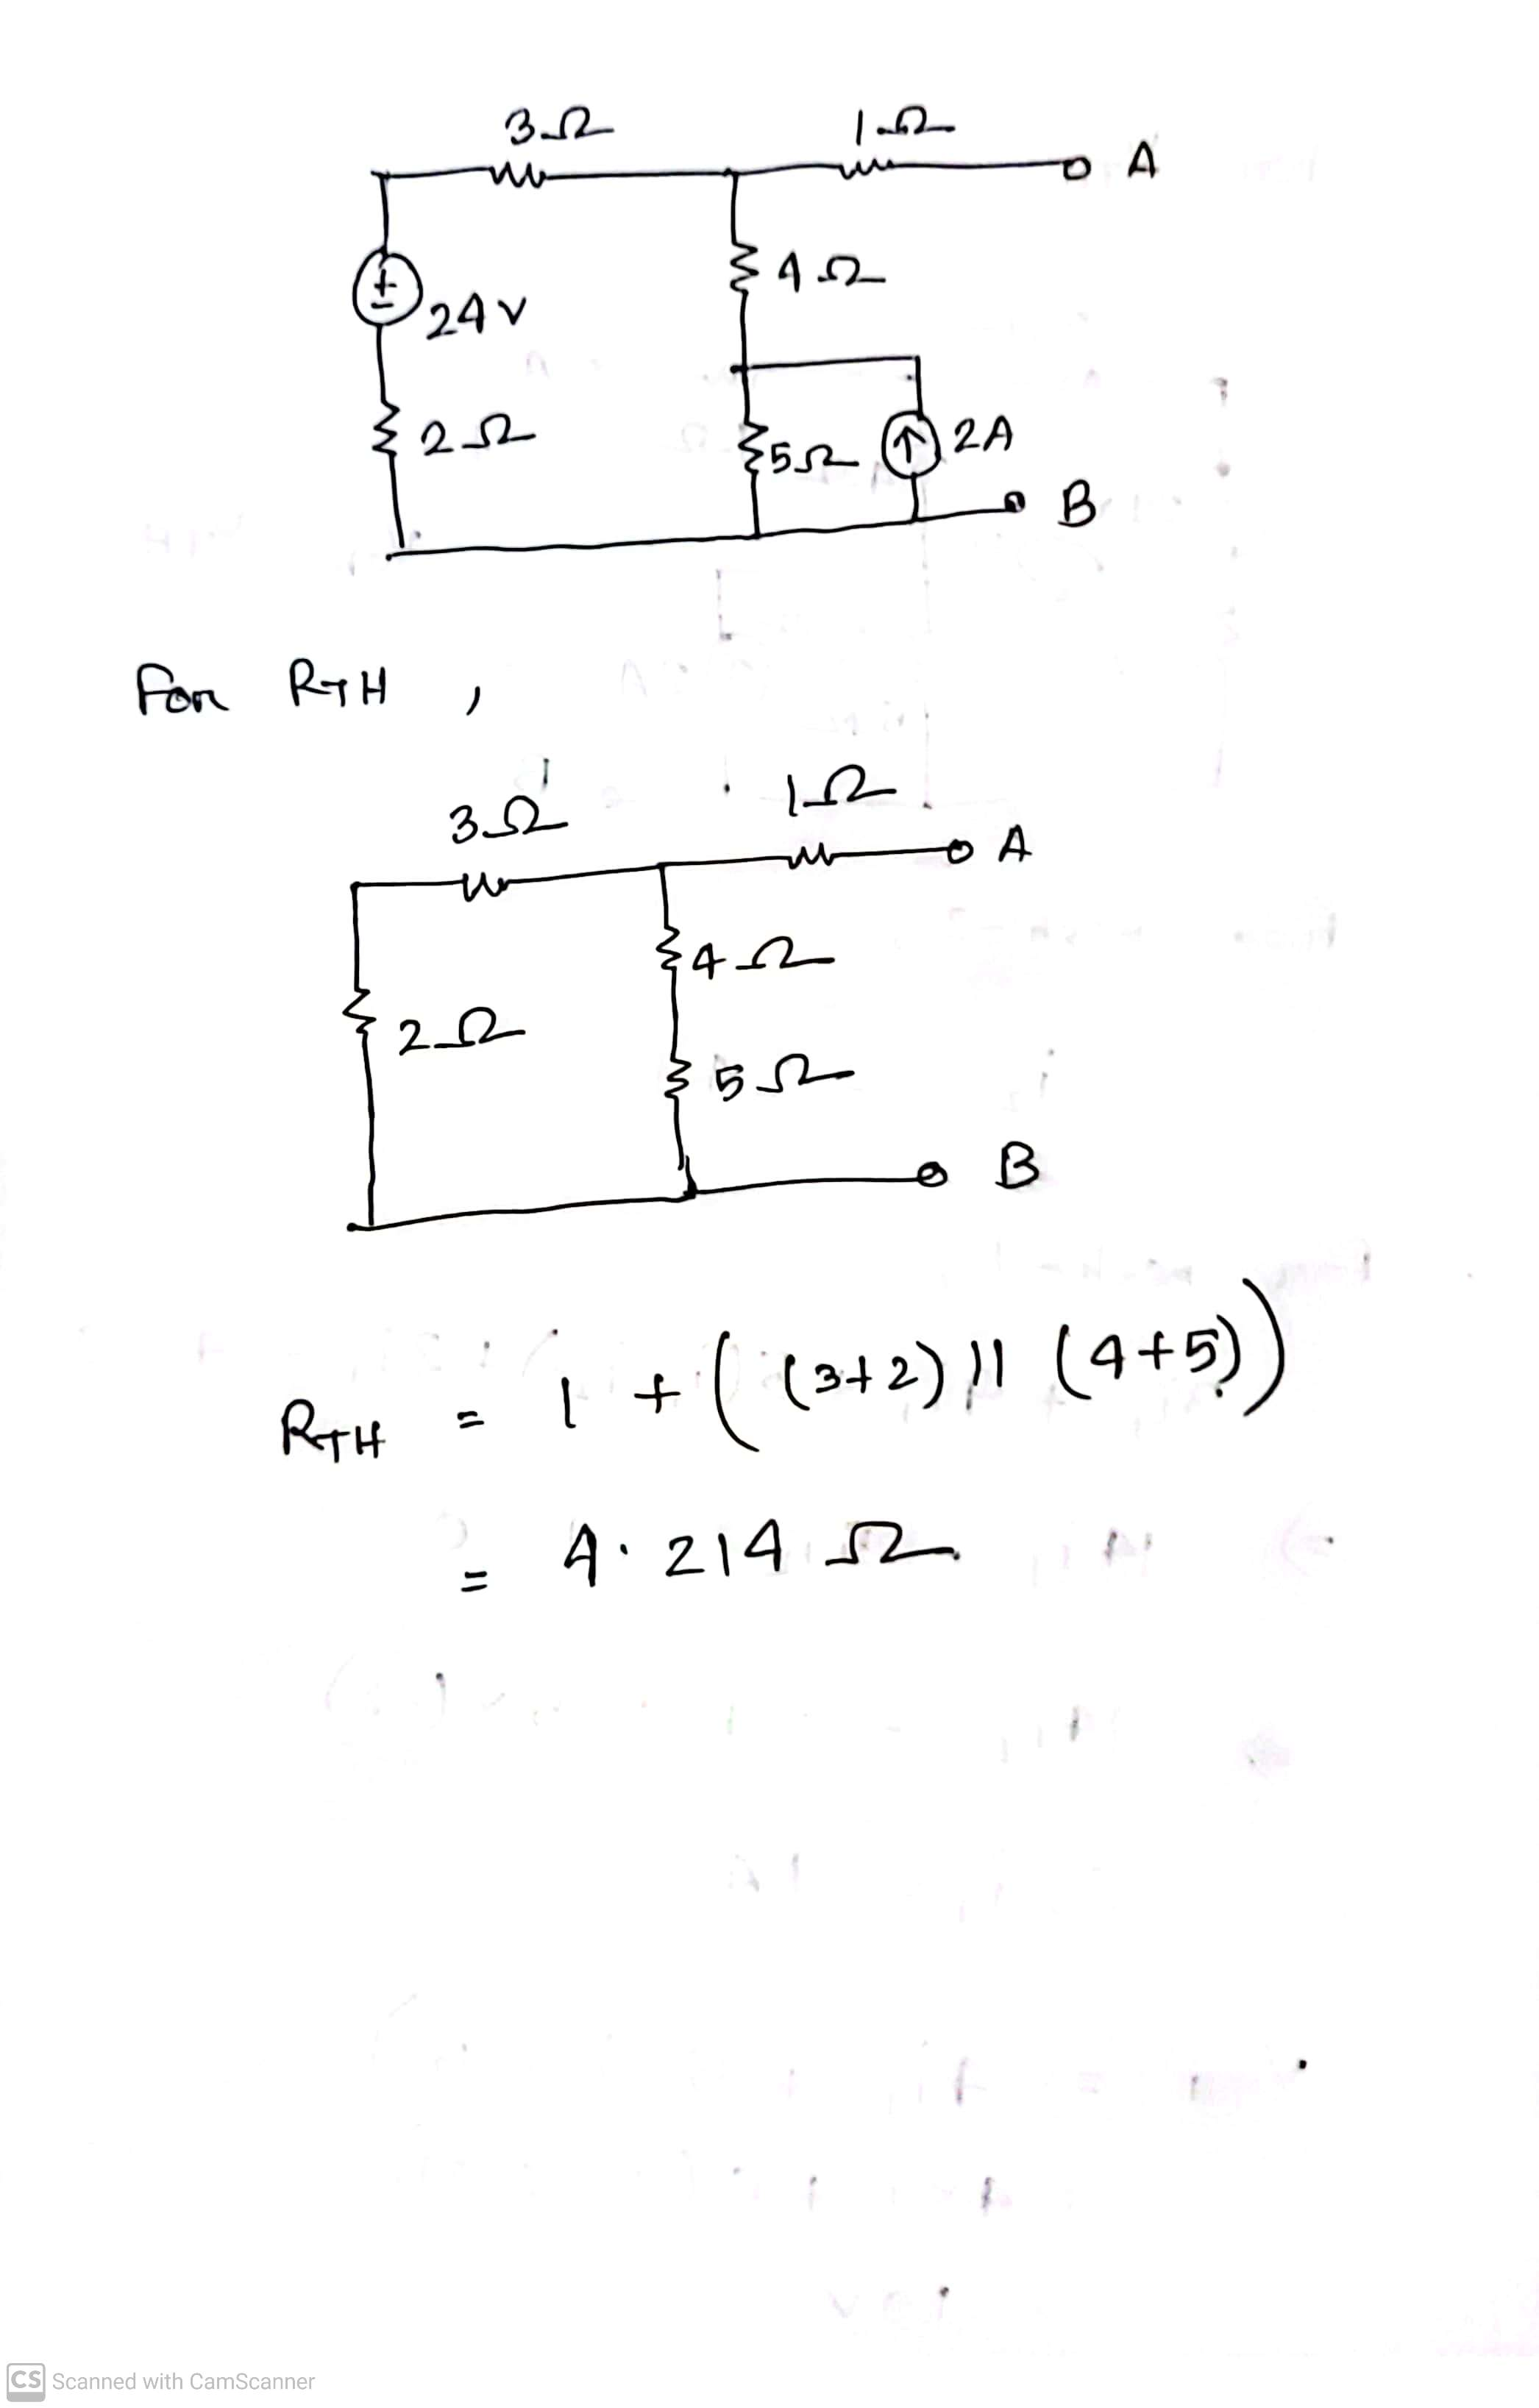 3Ω 1Ω
A
4Ω
+
-
24V
2Ω 5Ω 2A
B
For RTH,
3Ω 1Ω
A
4Ω
2Ω
5Ω
B
RTH = 1 + ((3+2) || (4+5))
= 4.214 Ω
CS Scanned with CamScanner